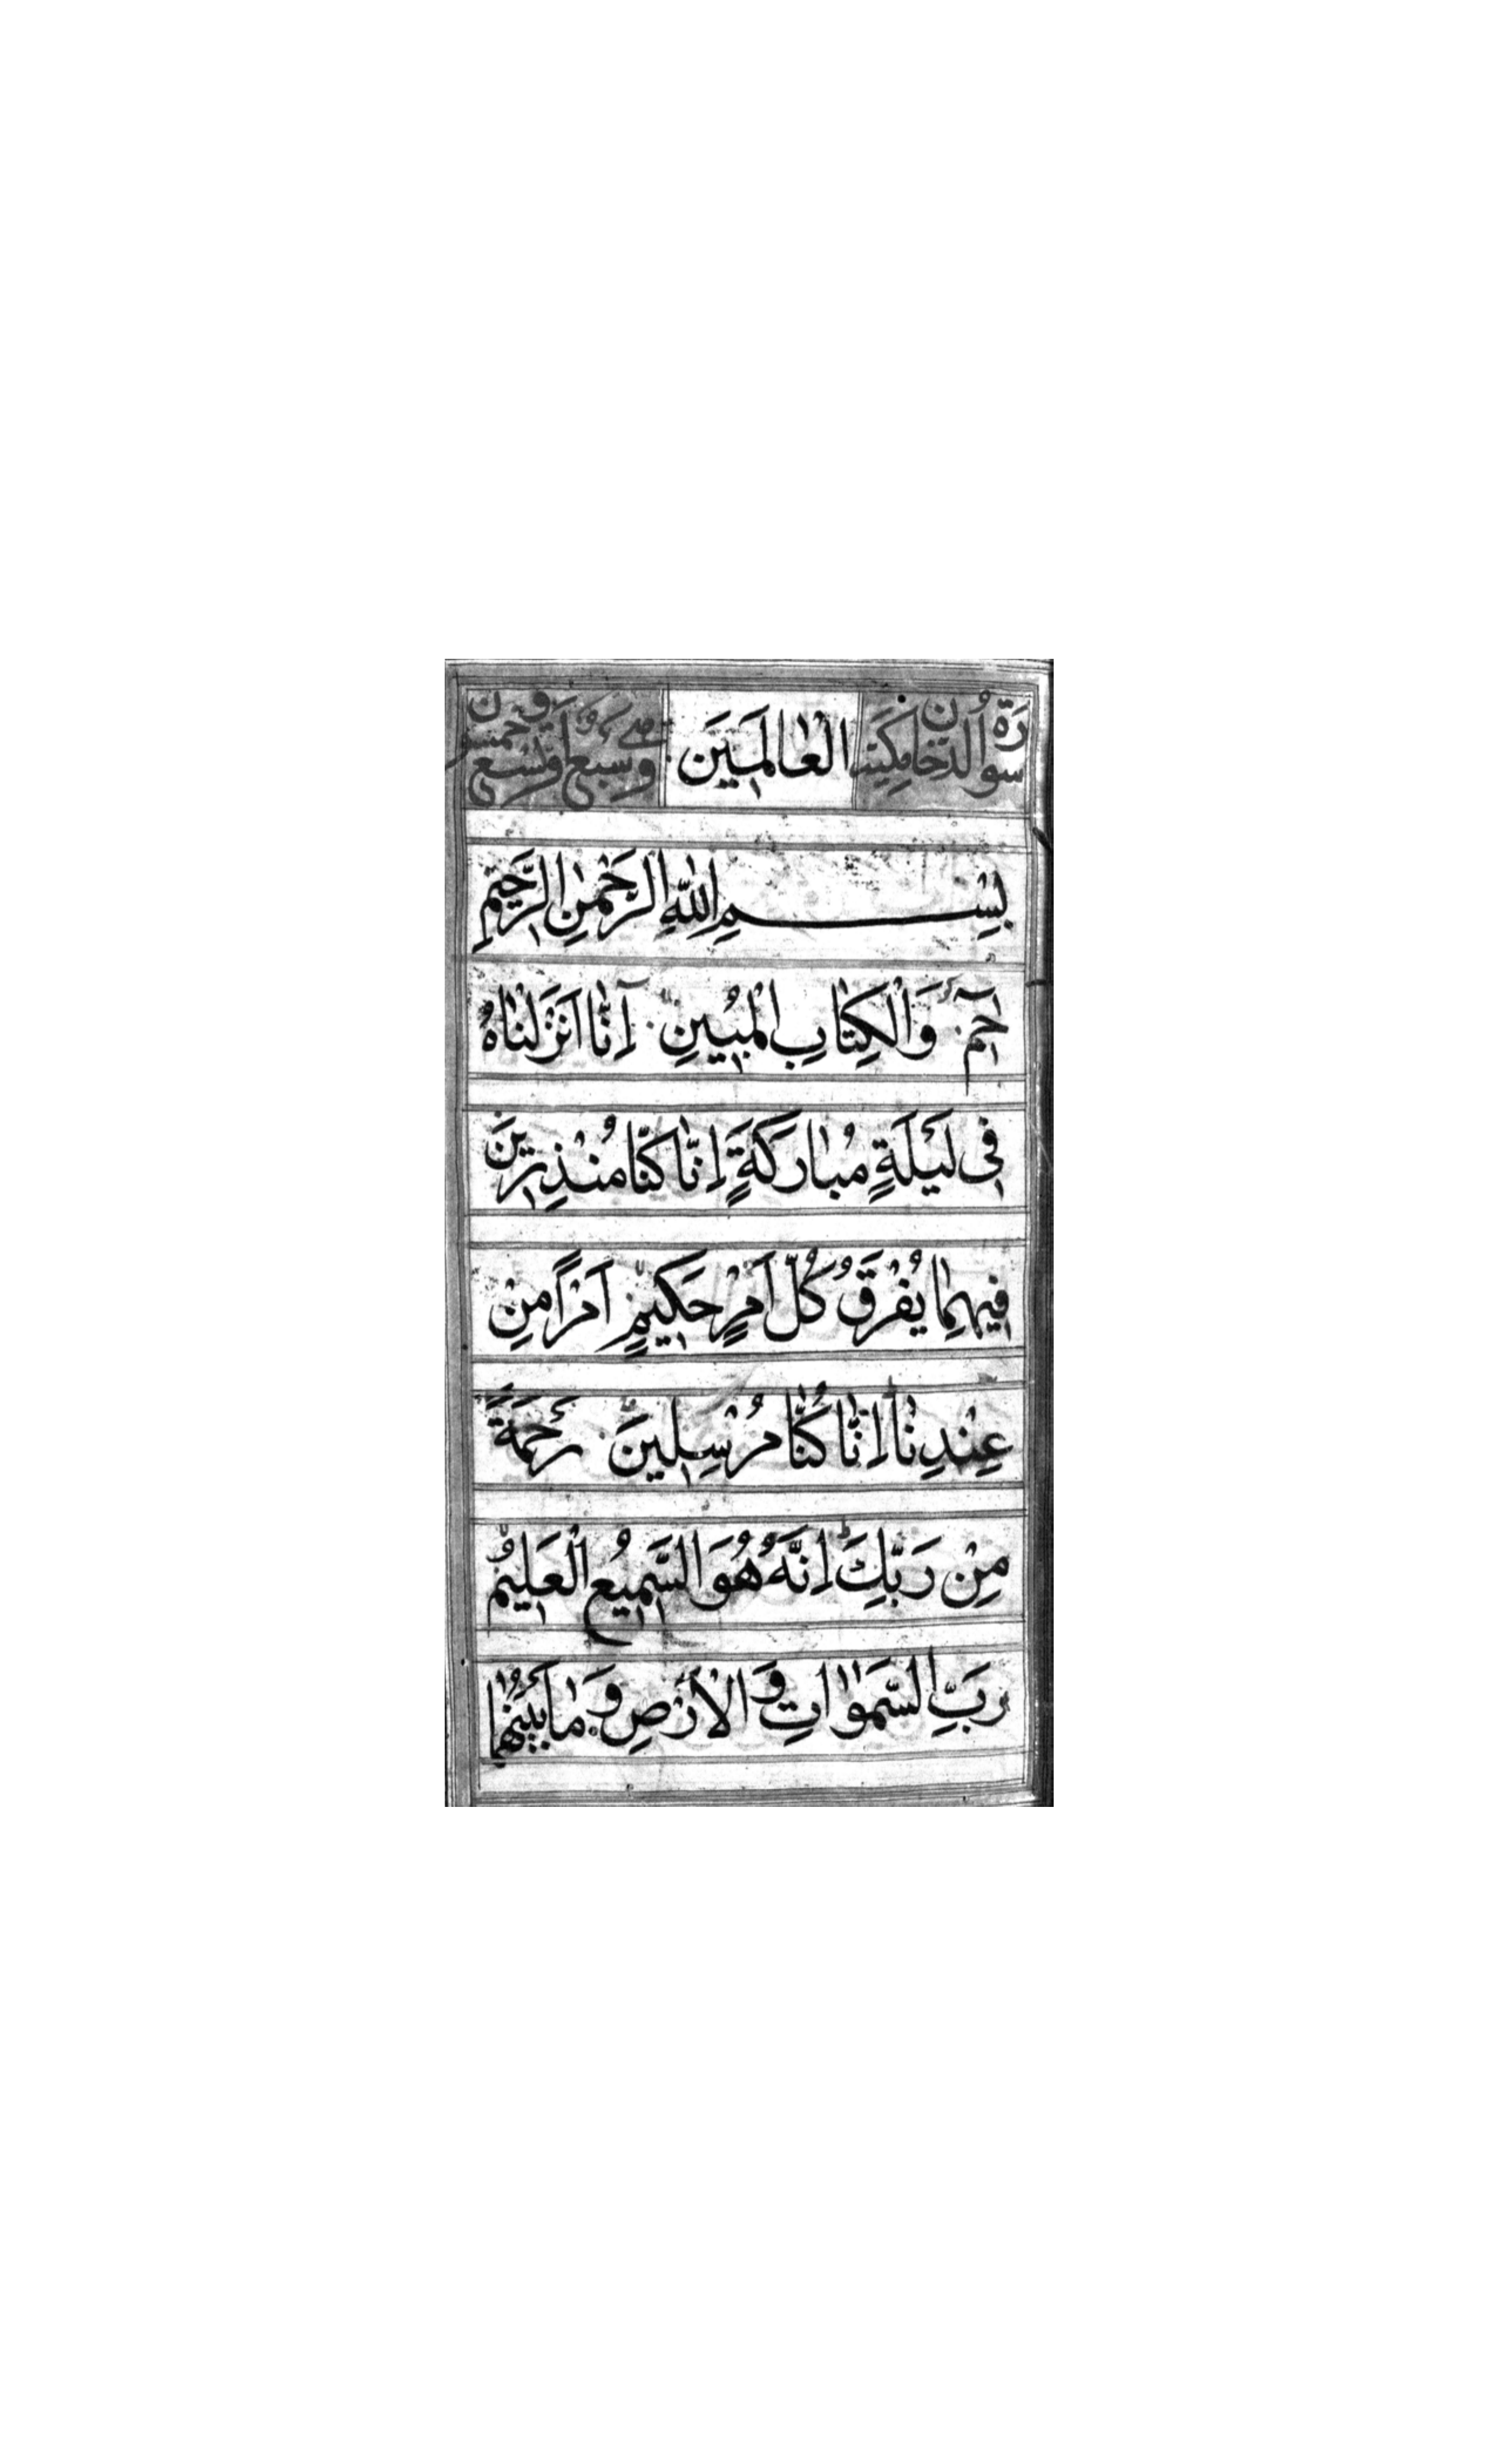 سورَة الدخان مكية الْعٰالَمٖينَ وهى سبع اَو تسع و خمسون
بِسْمِ اللّٰهِ الرَّحْمٰنِ الرَّحٖيمِ
حٰمٓ وَالْكِتٰابِ الْمُبٖينِ اِنّٰٓا اَنْزَلْنٰاهُ
فٖى لَيْلَةٍ مُبٰارَكَةٍ اِنّٰا كُنّٰا مُنْذِرٖينَ
فٖيهِمٰا يُفْرَقُ كُلُّ اَمْرٍ حَكٖيمٍ اَمْرًا مِنْ
عِنْدِنٰا اِنّٰا كُنّٰا مُرْسِلٖينَ رَحْمَةً
مِنْ رَبِّكَ اِنَّهُ هُوَ السَّمٖيعُ الْعَلٖيمُ
رَبِّ السَّمٰوٰاتِ وَ الْاَرْضِ وَ مٰا بَيْنَهُمٰا